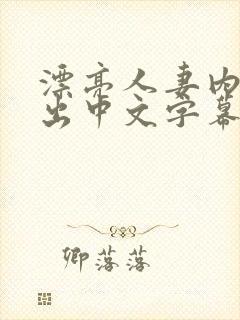 漂亮人妻内
出中文字幕
卿落落